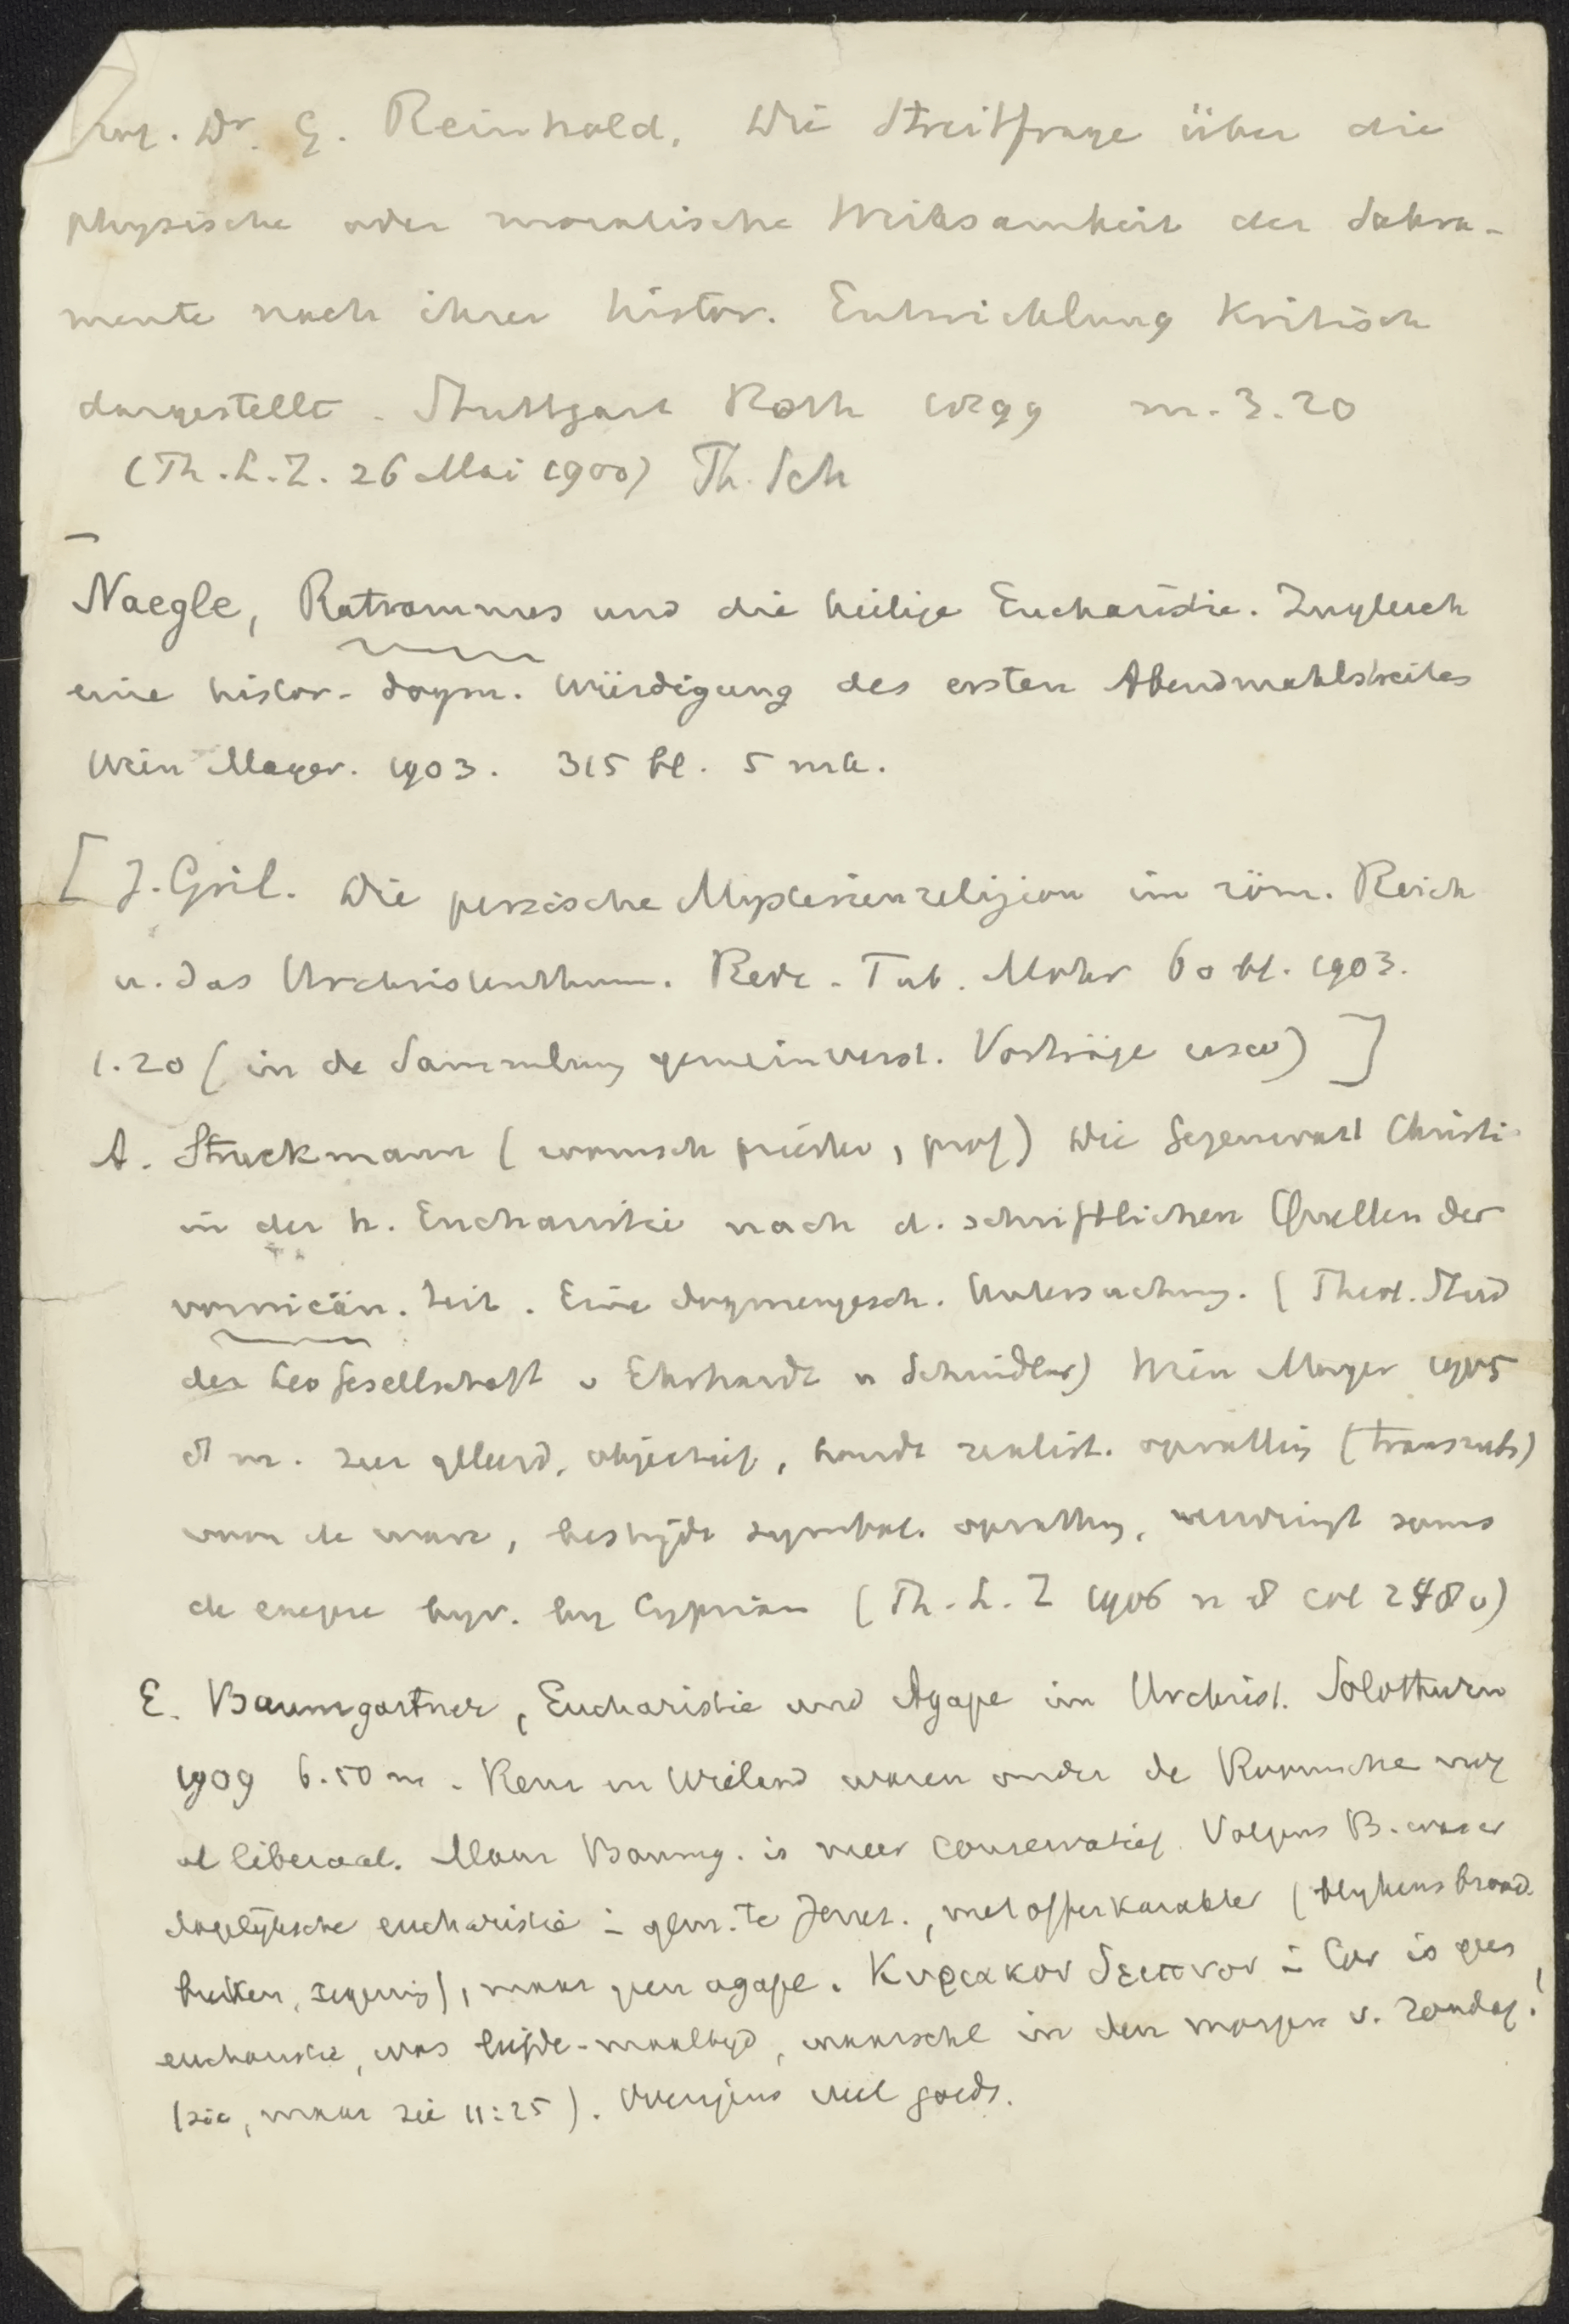 Prof. Dr. G. Reinhold, Die Streitfrage über die
physische oder moralische Wirksamkeit der Sakra-
mente nach ihrer histor. Entwicklung kritisch
dargestellt. Stuttgart Roth 1899 m. 3.20
(Th. L. Z. 26 Mai 1900) Th. Sch
Naegle, Ratramnus und die heilige Eucharistie. Zugleich
eine histor-dogm. Würdigung des ersten Abendmahlstreites
Wien Mayer. 1903. 315 bl. 5 mk.
[ J. Gril. Die persische Mysterienreligion im röm. Reich
u. das Urchristenthum. Rede. Tub. Mohr 60 bl. 1903.
1.20 (in de Sammlung gemeinverst. Vorträge usw) ]
A. Struckmann (roomsch priester, prof) Die Gegenwart Christi
in der h. Eucharistie nach d. schriftlichen Quellen der
vornicän. Zeit. Eine dogmengesch. Untersuchung. (Theol. Stud
der Leo Gesellschaft v Ehrhardt u Schindler) Wien Mayer 1905
5 m. zeer geleerd, objectief, houdt realist. opvatting (transsubs)
voor de ware, bestrijdt symbol. opvatting, verdringt soms
de exegese bijv. by Cyprian (Th. L. Z 1906 n 8 col 248 v)
E. Baumgartner, Eucharistie und Agape im Urchrist. Solothurn
1909 6.50 m. Renz en Wieland waren onder de Roomsche nog
al liberaal. Maar Baumg. is meer conservatief. Volgens B. was er
dagelijksche eucharistie in gem. te Jeruz., met offerkarakter (blykens brood
breken, zegening), maar geen agape. Κυριακον δειπνον in Cor is geen
eucharistie, was liefde-maaltijd, waarschl in den morgen v. Zondag!
(sic, maar zie 11:25). Overigens veel goeds.